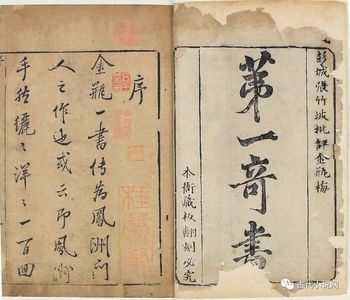 彭城張竹坡批評金瓶梅
第一奇書
本衙藏板翻刻必究
序
金瓶一書傳為鳳洲門
人之作也或云即鳳洲
手然纚〻洋〻一百回
古代小说网